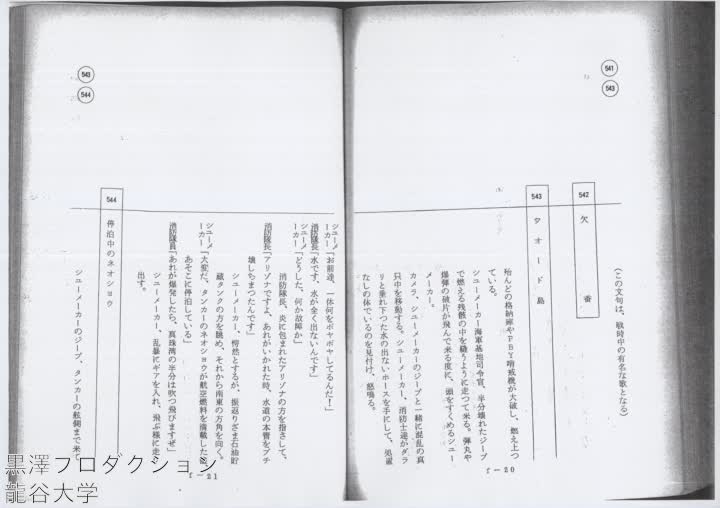 541
543
(この文句は、戦時中の有名な歌となる)
542 欠番
543 フオード島
殆んどの格納庫やPBY哨戒機が大破し、燃え上つ
ている。
シューメーカー海軍基地司令官、半分壊れたジープ
で燃える残骸の中を縫うように走つて来る。弾丸や
爆弾の破片が飛んで来る度に、頭をすくめるシュー
メーカー。
カメラ、シューメーカーのジープと一緒に混乱の真
只中を移動する。シューメーカー、消防士達がダラ
リと垂れ下つた水の出ないホースを手にして、処置
なしの体でいるのを見付け、怒鳴る。
f-20
543
544
シューメーカー「お前達、一体何をボヤボヤしてるんだ!」
消防隊長「水です、水が全く出ないんです」
シューメーカー「どうした、何か故障か」
消防隊長、炎に包まれたアリゾナの方を指さして、
消防隊長「アリゾナですよ、あれがいかれた時、水道の本管をブチ
壊しちまつたんです」
シューメーカー、愕然とするが、振返りざま石油貯
蔵タンクの方を眺め、それから南東の方角を向く。
シューメーカー「大変だ、タンカーのネオショウが航空燃料を満載した儘、
あそこに停泊している」
消防隊員「あれが爆発したら、真珠湾の半分は吹つ飛びますぜ」
シューメーカー、乱暴にギアを入れ、飛ぶ様に走り
出す。
544 停泊中のネオショウ
シューメーカーのジープ、タンカーの舷側まで来て
f-21
黒澤プロダクション
龍谷大学